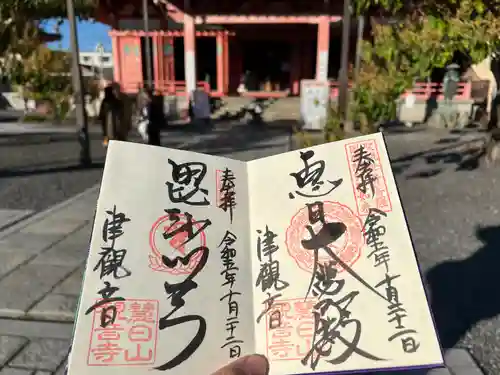 奉拝
恵日
大黒殿
津観音
令和元年十月二十二日
慧日山
観音寺
奉拝
毘沙門天
津観音
令和元年十月二十二日
慧日山
観音寺